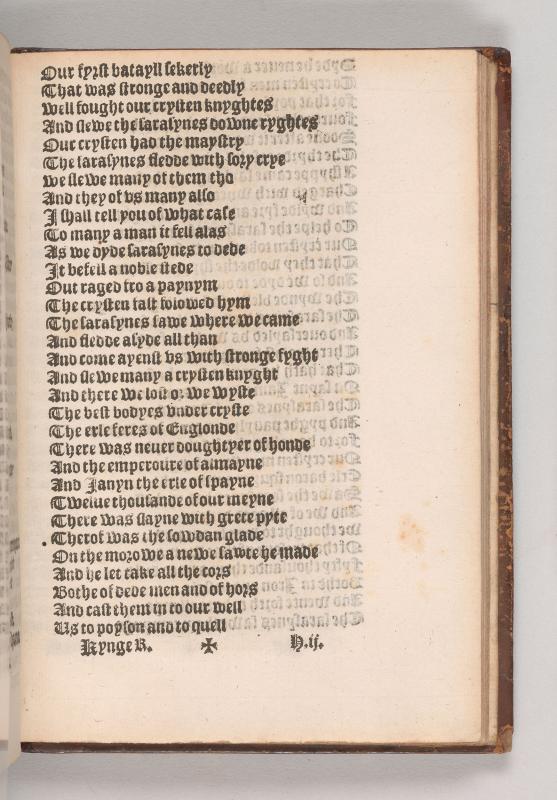 Our fyrst batayll sekerly
That was stronge and deedly
Well fought our crysten knyghtes
And slewe the sarasynes downe ryghtes
Our crysten had the maystry
The sarasynes fledde with sory crye
We slewe many of them tho
And they of vs many also
I shall tell you of what case
To many a man it fell alas
As we dyde sarasynes to dede
It befell a noble stede
Out raged fro a paynym
The crysten fast folowed hym
The sarasynes sawe where we came
And fledde asyde all than
And come ayenst vs with stronge fyght
And slewe many a crysten knyght
And there we lost or we wyste
The best bodyes vnder cryste
The erle feres of Englonde
There was neuer doughtyer of honde
And the emperoure of almayne
And Janyn the erle of spayne
Twelue thousande of our meyne
There was slayne with grete pyte
Therof was the sowdan glade
On the morowe a newe sawte he made
And he let take all the cors
Bothe of dede men and of hors
And cast them in to our well
Us to poyson and to quell
Kynge R. ✠ H.ij.